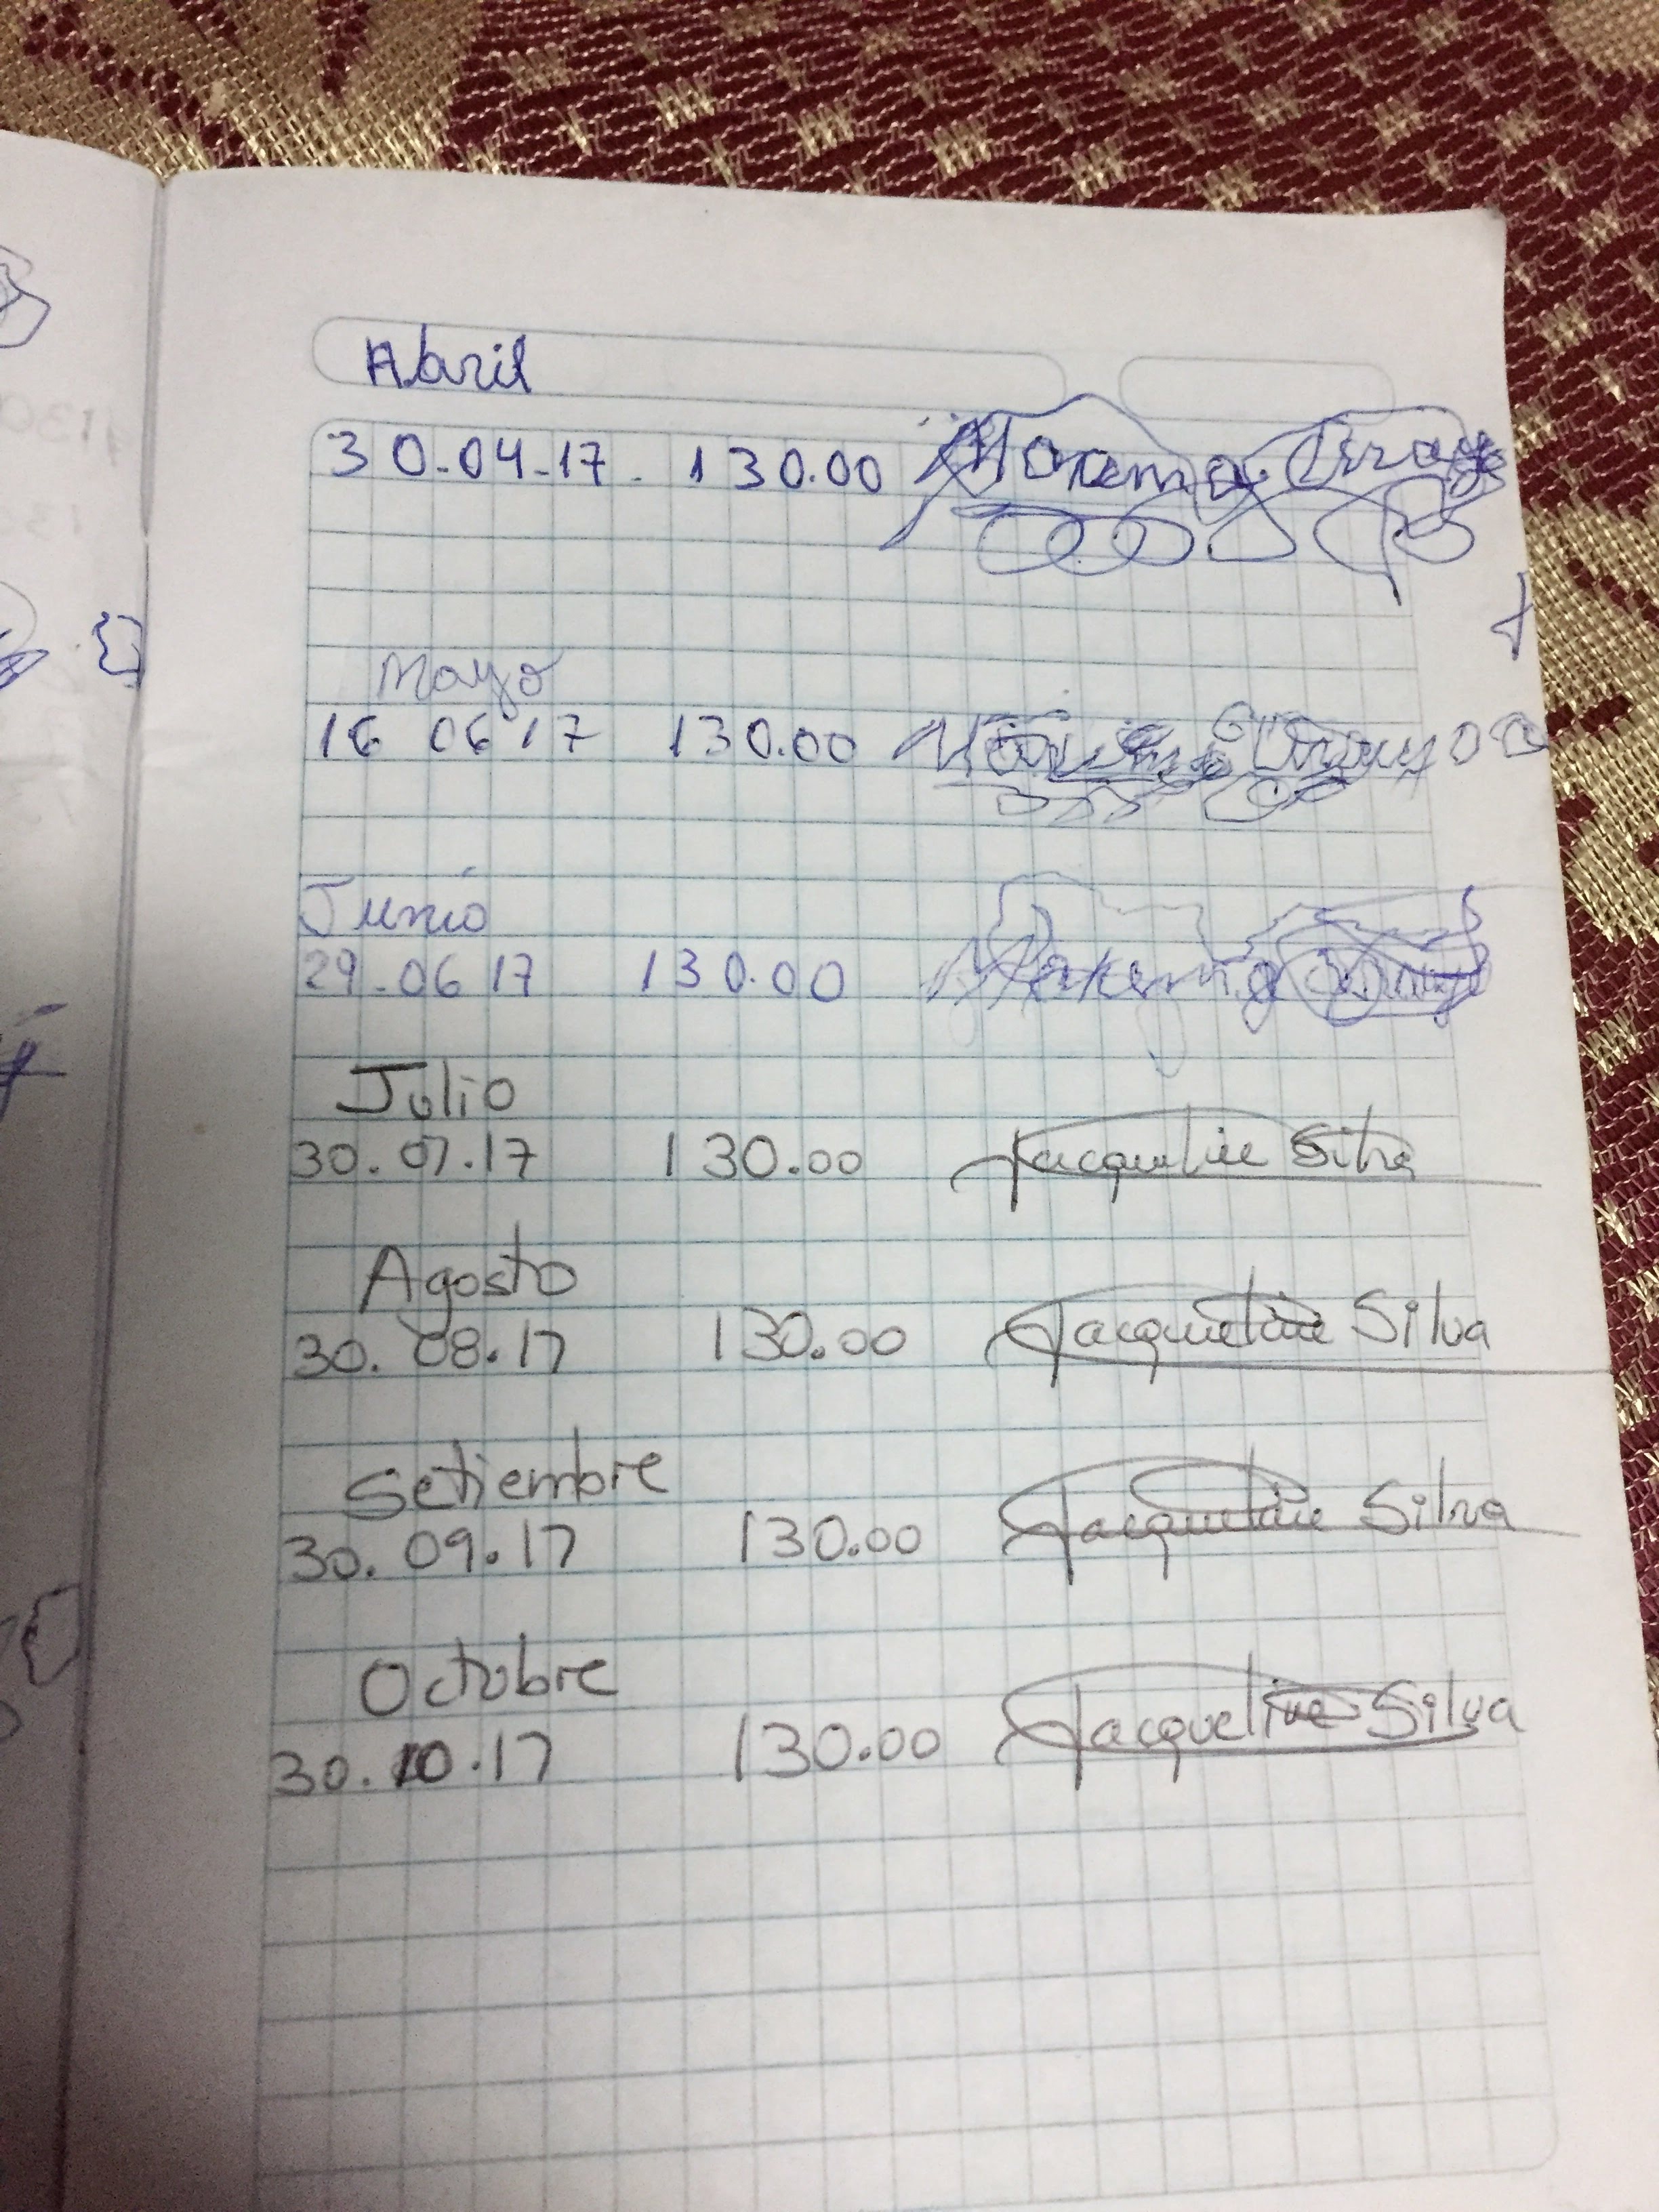 Abril
30.04-17. 130.00
Mayo
16 06 17 130.00
Junio
29-06 17 130.00
Julio
30.07.17 130.00 Jacqueline Silva
Agosto
30. 08.17 130.00 Jacqueline Silva
Setiembre
30. 09.17 130.00 Jacqueline Silva
Octubre
30. 10.17 130.00 Jacqueline Silva